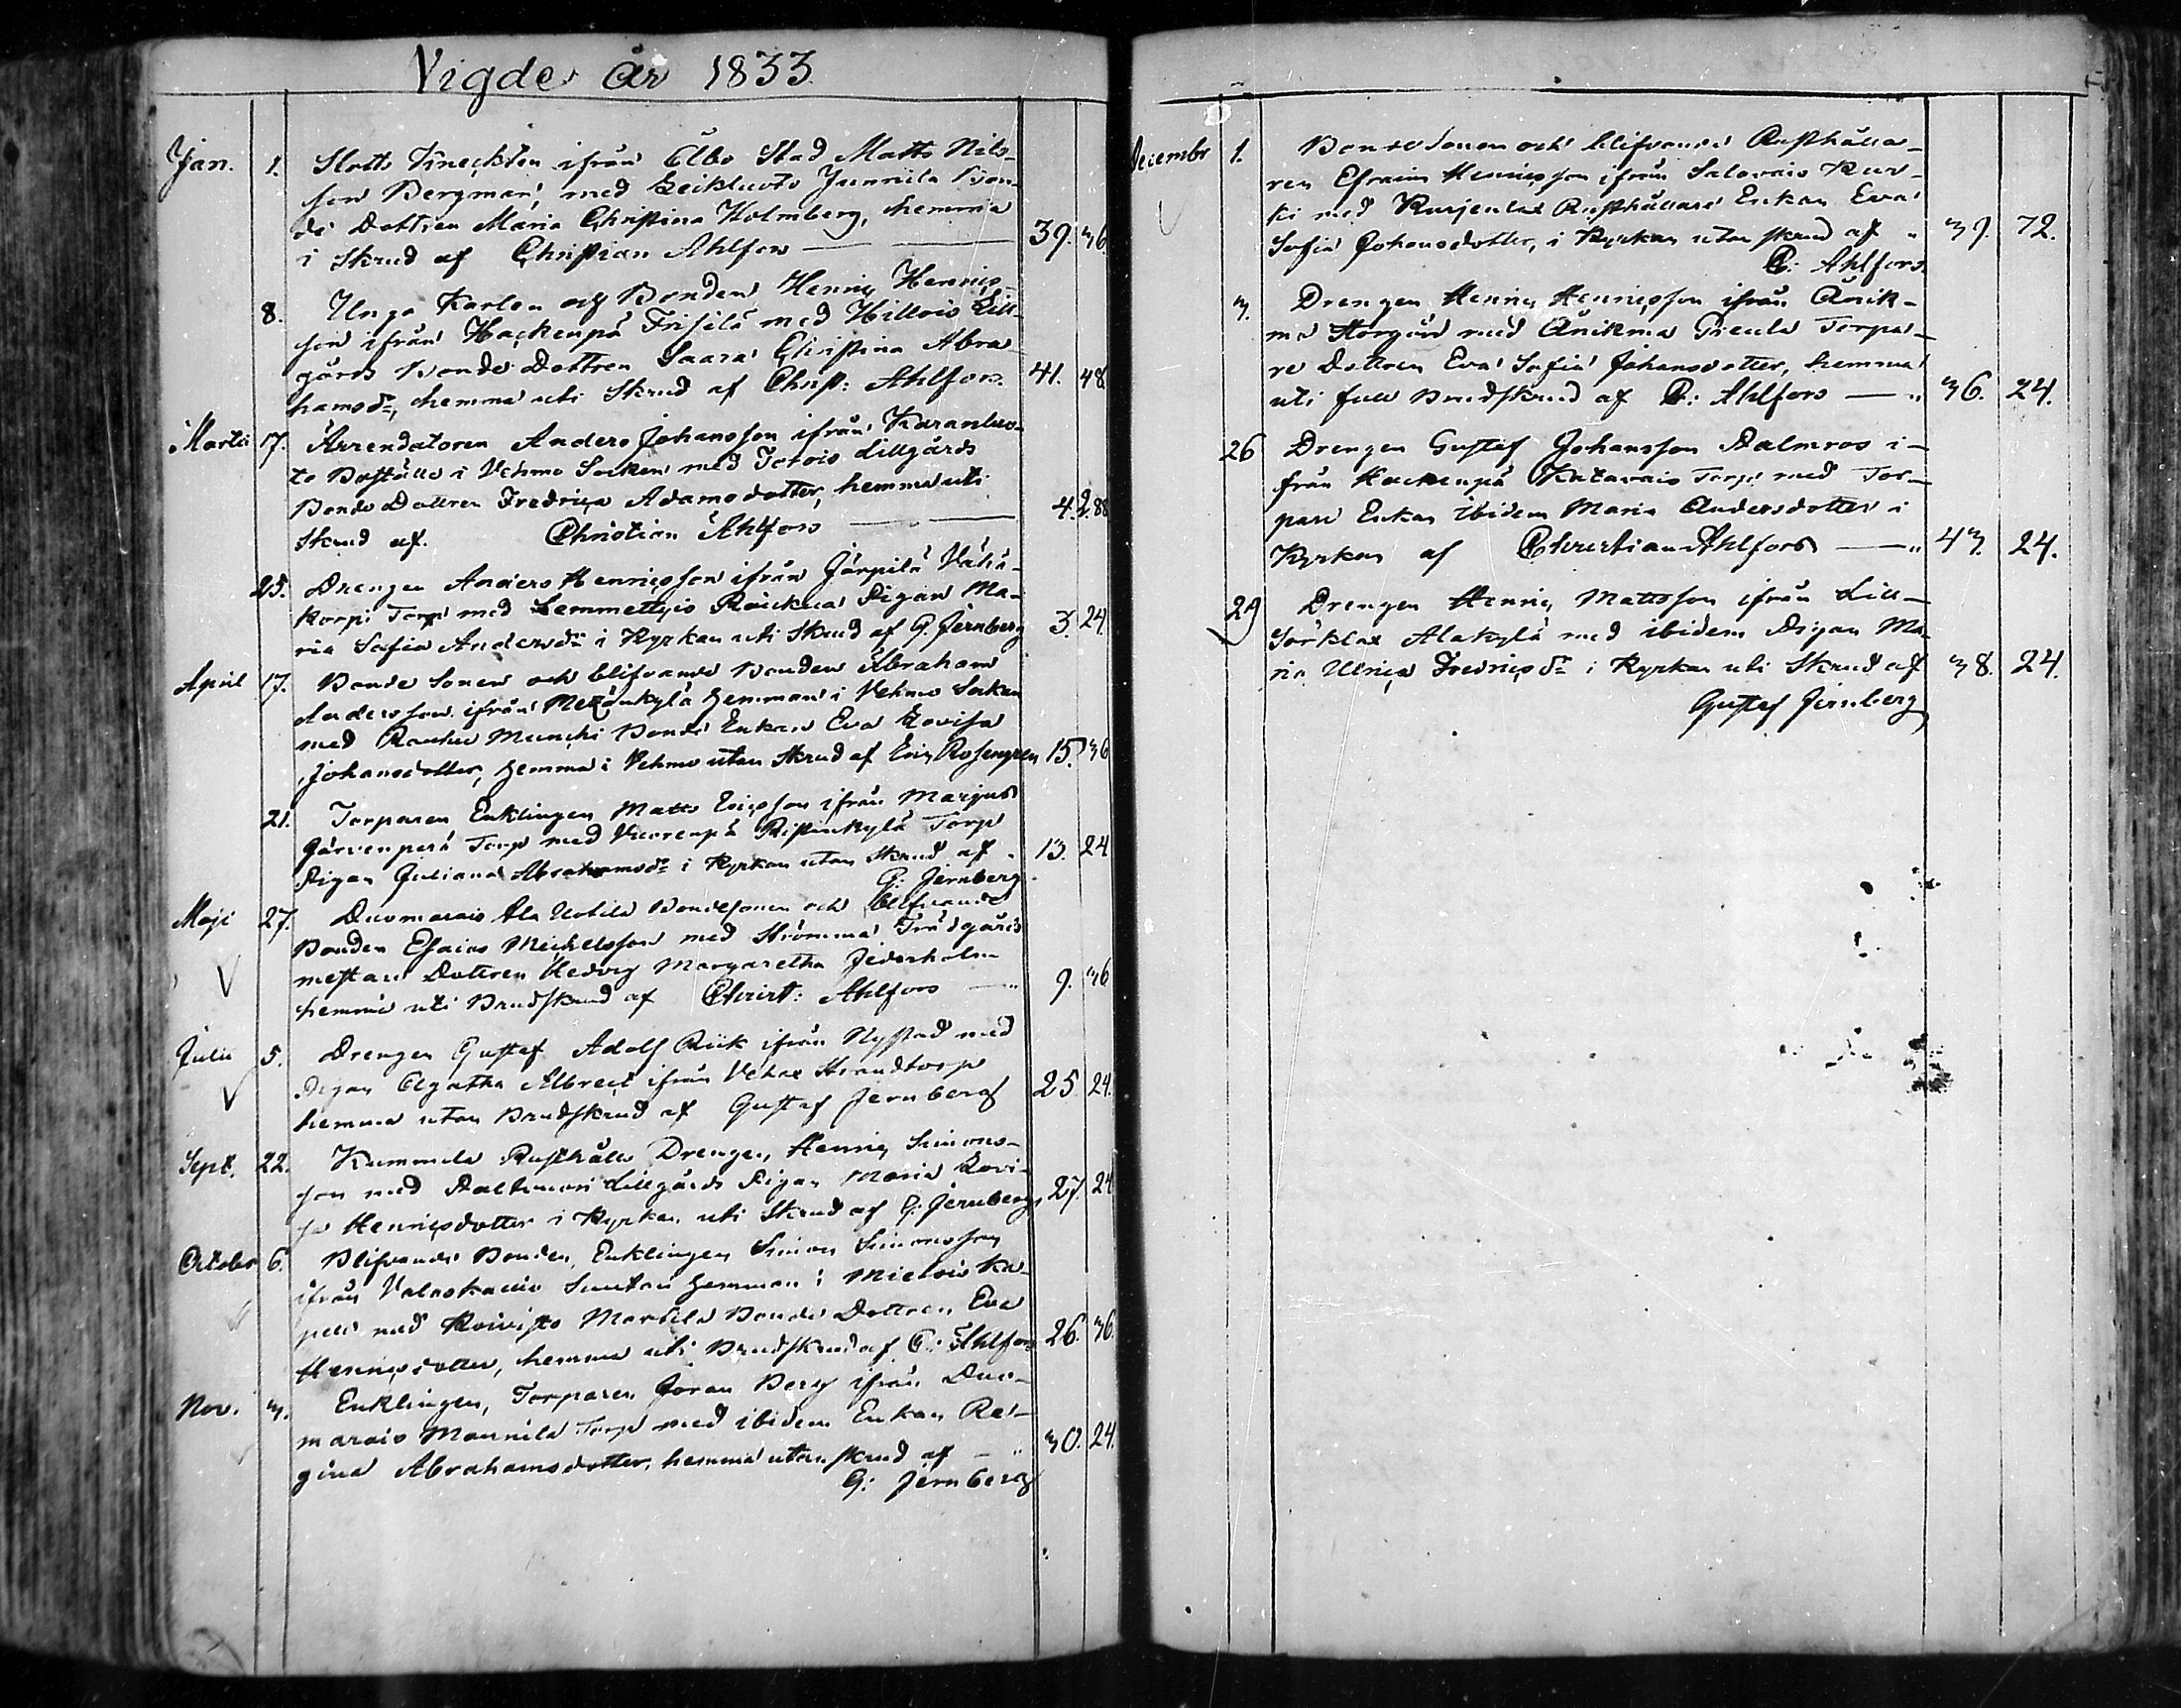 Vigde år 1833.
Jan. 1. Slotts Kneckten ifrån Åbo Stad Matts Nils-
son Bergman, med Leikluoto Junnila Bon-
de Dottren Maria Christina Holmberg, hemma
i Skrud af Christian Ahlfors 39. 36.
8. Unga Karlen och Bonden Henric Henrics-
son ifrån Hackenpä Frisilä med Hillois Lill-
gårds Bonde Dottren Saara Christina Abra-
hamsdr, hemma uti Skrud af Christ: Ahlfors. 41. 48.
Martii 17. Arrendatoren Anders Johansson ifrån Karanluo-
to Boställe i Vehmo Socken med Totois Lillgårds
Bonde Dottren Fredrica Adamsdotter, hemma uti
Skrud af. Christian Ahlfors 42. 88
25. Drengen Anders Henricsson ifrån Järpilä Vähä-
korpi Torp med Lemmettyis Pigan Ma-
ria Safia Andersdr i Kyrkan uti Skrud af G. Jernberg 3. 24.
April 17. Bonde Sonen och blifvande Bonden Abraham
Andersson ifrån Hemman i Vehmo Socken
med Rauhu Bonde Enkan Eva Lovisa
Johansdotter, hemma i Vehmo utan Skrud af Eric Rosengren 15. 36
21. Torparen Enklingen Matts Ericsson ifrån Marjus
Järvenperä Torp med Vuorenpä Ristinkylä Torp
Pigan Juliana Abrahamsdr i Kyrkan utan Skrud af 13. 24
G: Jernberg.
Maji 27. Duomarais Ala Uotila Bondesonen och blifvande
Bonden Esaias Michelsson med Strömma Trädgårds
mestare Dottren Hedvig Margaretha Jederholm
hemma uti Brudskrud af Christ: Ahlfors 9. 36
Julii 5. Drengen Gustaf Adolf Rük ifrån Nystad med
Pigan Agatha Albrect ifrån Vehax Strandtorp
hemma utan Brudskrud af Gustaf Jernberg 25. 24.
Sept. 22. Kummela Rusthålls Drengen, Henric Simons-
son med Lillgårds Pigan Maria Lovi-
sa Henricsdotter i Kyrkan uti Skrud af G: Jernberg 27. 24
October 6. Blifvande Bonden, Enklingen Simon Simonsson
ifrån Hemman i Mietois Ka-
pell med Koivisto Martila Bonde Dottren Eva
Henricsdotter, hemma uti Brudskrud af C: Ahlfors 26. 36.
Nov. 3. Enklingen, Torparen Göran Berg ifrån Duo-
marais Mannila Torp med ibidem Enkan Re-
gina Abrahamsdotter, hemma utan skrud af 30. 24.
G: Jernberg
Decembr 1. Bondesonen och blifvande Rusthålla-
ren Efraim Henricsson ifrån Salavais Kur-
ki med Kurjenlax Rusthållare Enkan Eva
Safia Johansdotter, i Kyrkan utan skrud af 39. 72.
C: Ahlfors.
3. Drengen Henric Henricsson ifrån Änik-
ma Storgård med Änikma Torpa-
re Dottren Eva Safia Johansdotter, hemma
uti full Brudskrud af C: Ahlfors 36. 24.
26 Drengen Gustaf Johansson Palmros i-
från Hackenpä Katavais Torp med Tor-
pare Enkan ibidem Maria Andersdotter i
Kyrkan af Christian Ahlfors 43. 24.
29 Drengen Henric Mattsson ifrån Lill-
Sorklax Alakylä med ibidem Pigan Ma-
ria Ulrica Fredricsdr i Kyrkan uti Skrud af 38. 24.
Gustaf Jernberg